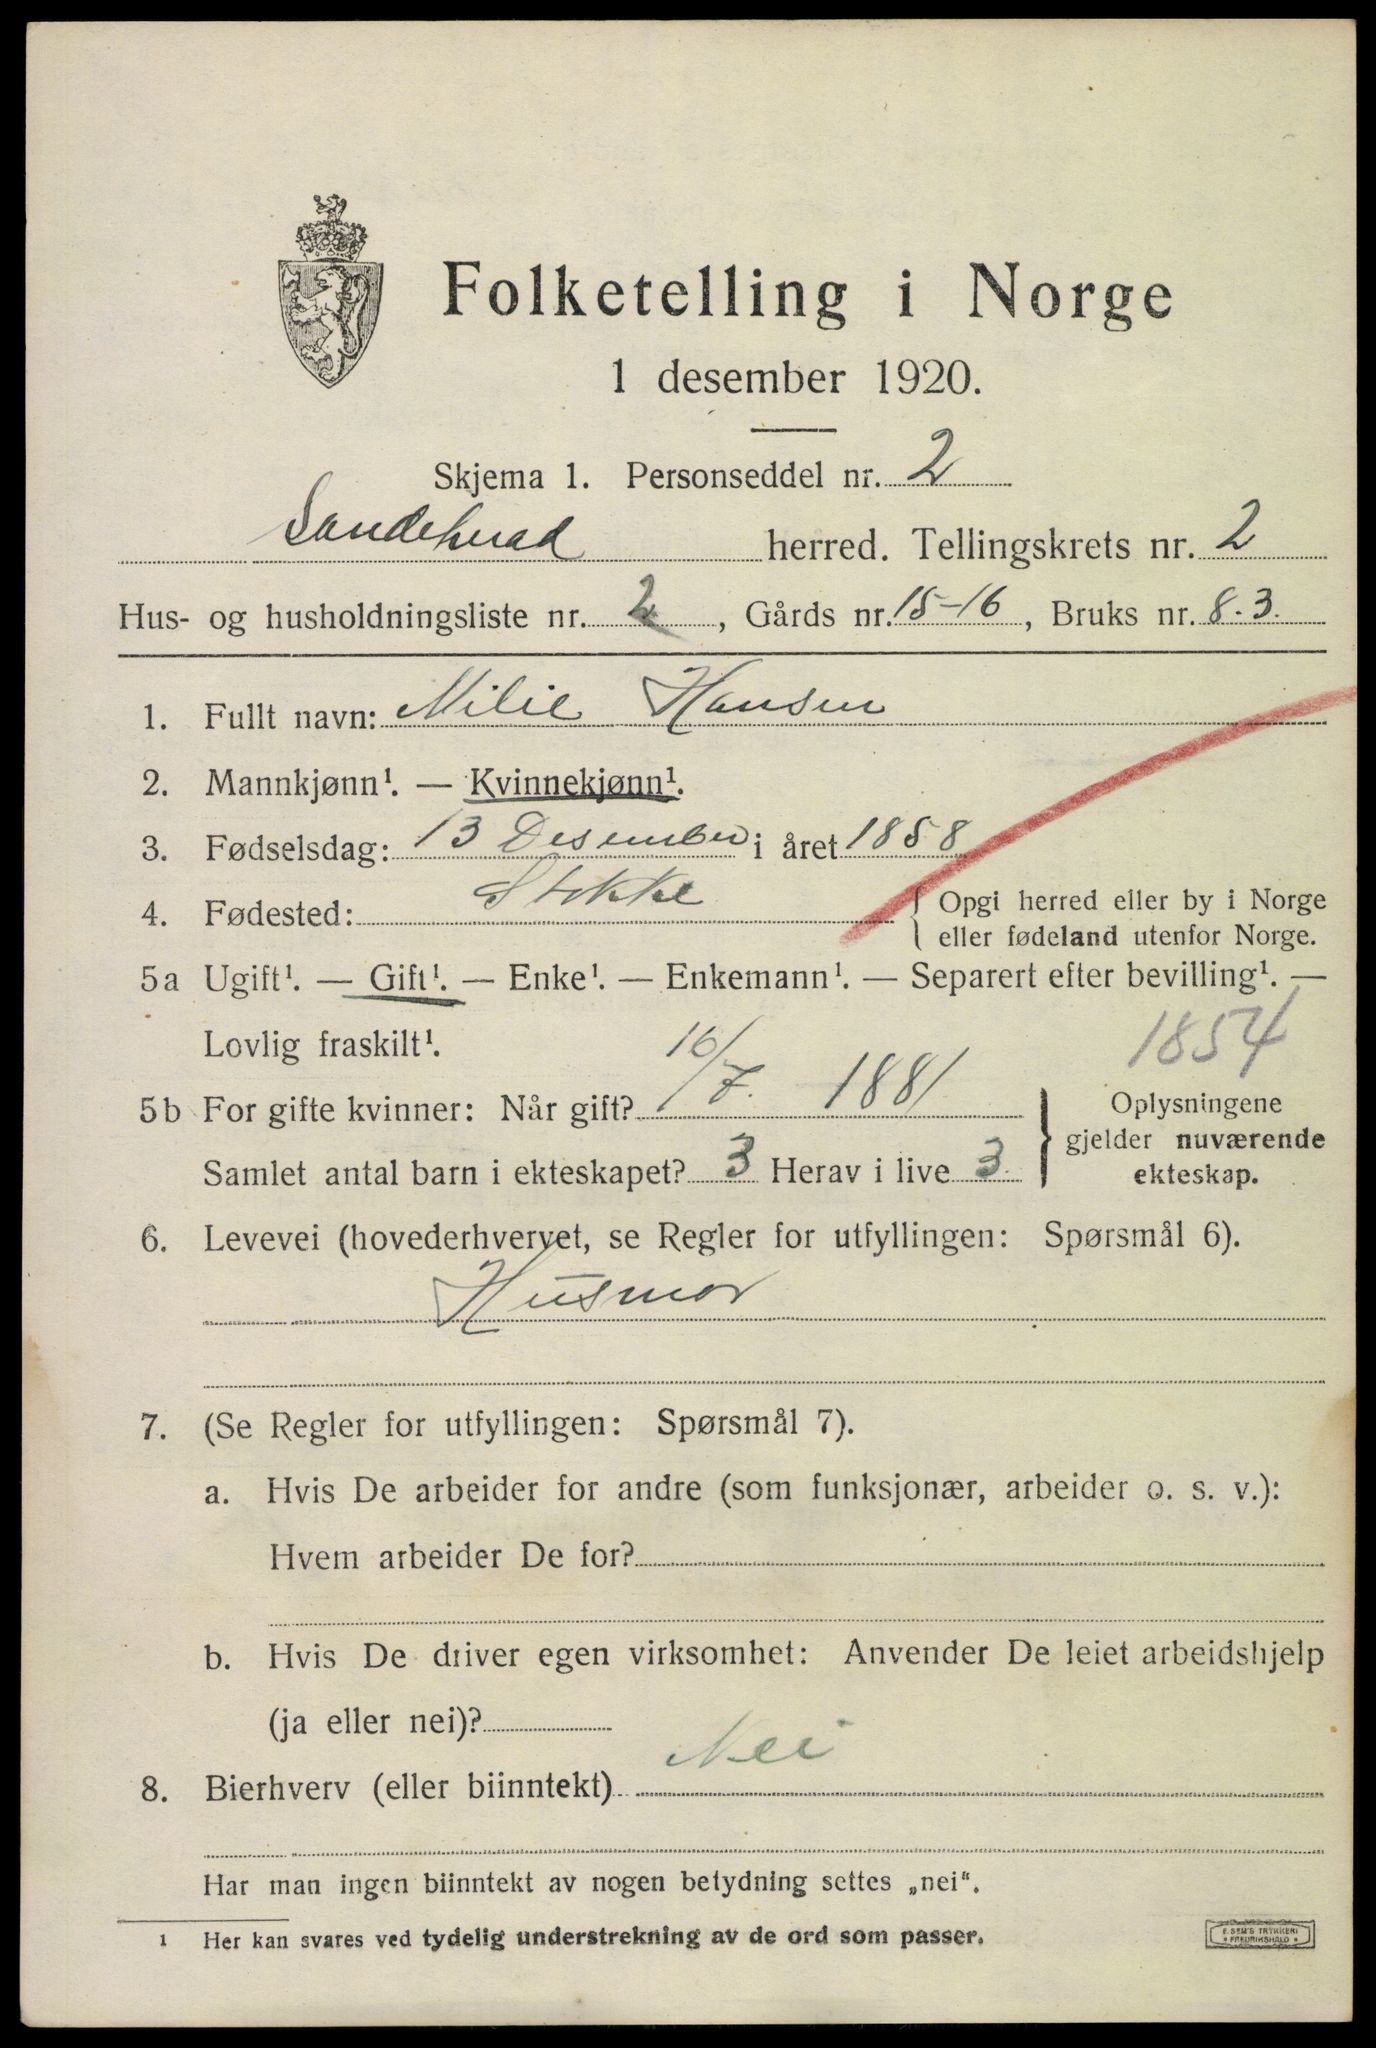 Folketelling i Norge
1 desember 1920.
Skjema 1. Personseddel nr. 2
Sandeherad herred. Tellingskrets nr. 2
Hus- og husholdningsliste nr. 2, Gårds nr. 15-16, Bruks nr. 8-3.
1. Fullt navn: Milie Hansen
2. Mannkjønn¹. — Kvinnekjønn¹.
3. Fødselsdag: 13 Desember i året 1858
4. Fødested: Stokke { Opgi herred eller by i Norge
eller fødeland utenfor Norge.
5a Ugift¹. — Gift¹. — Enke¹. — Enkemann¹. — Separert efter bevilling¹. —
Lovlig fraskilt¹.
1854
5b For gifte kvinner: Når gift? 16/7. 1881
Samlet antal barn i ekteskapet? 3 Herav i live 3
} Oplysningene
gjelder nuværende
ekteskap.
6. Levevei (hovederhvervet, se Regler for utfyllingen: Spørsmål 6).
Husmor
7. (Se Regler for utfyllingen: Spørsmål 7).
a. Hvis De arbeider for andre (som funksjonær, arbeider o. s. v.):
Hvem arbeider De for?
b. Hvis De driver egen virksomhet: Anvender De leiet arbeidshjelp
(ja eller nei)?
8. Bierhverv (eller biinntekt) Nei
Har man ingen biinntekt av nogen betydning settes „nei“.
1 Her kan svares ved tydelig understrekning av de ord som passer.
E. SEM'S TRYKKERI
* FREDRIKSHALD *